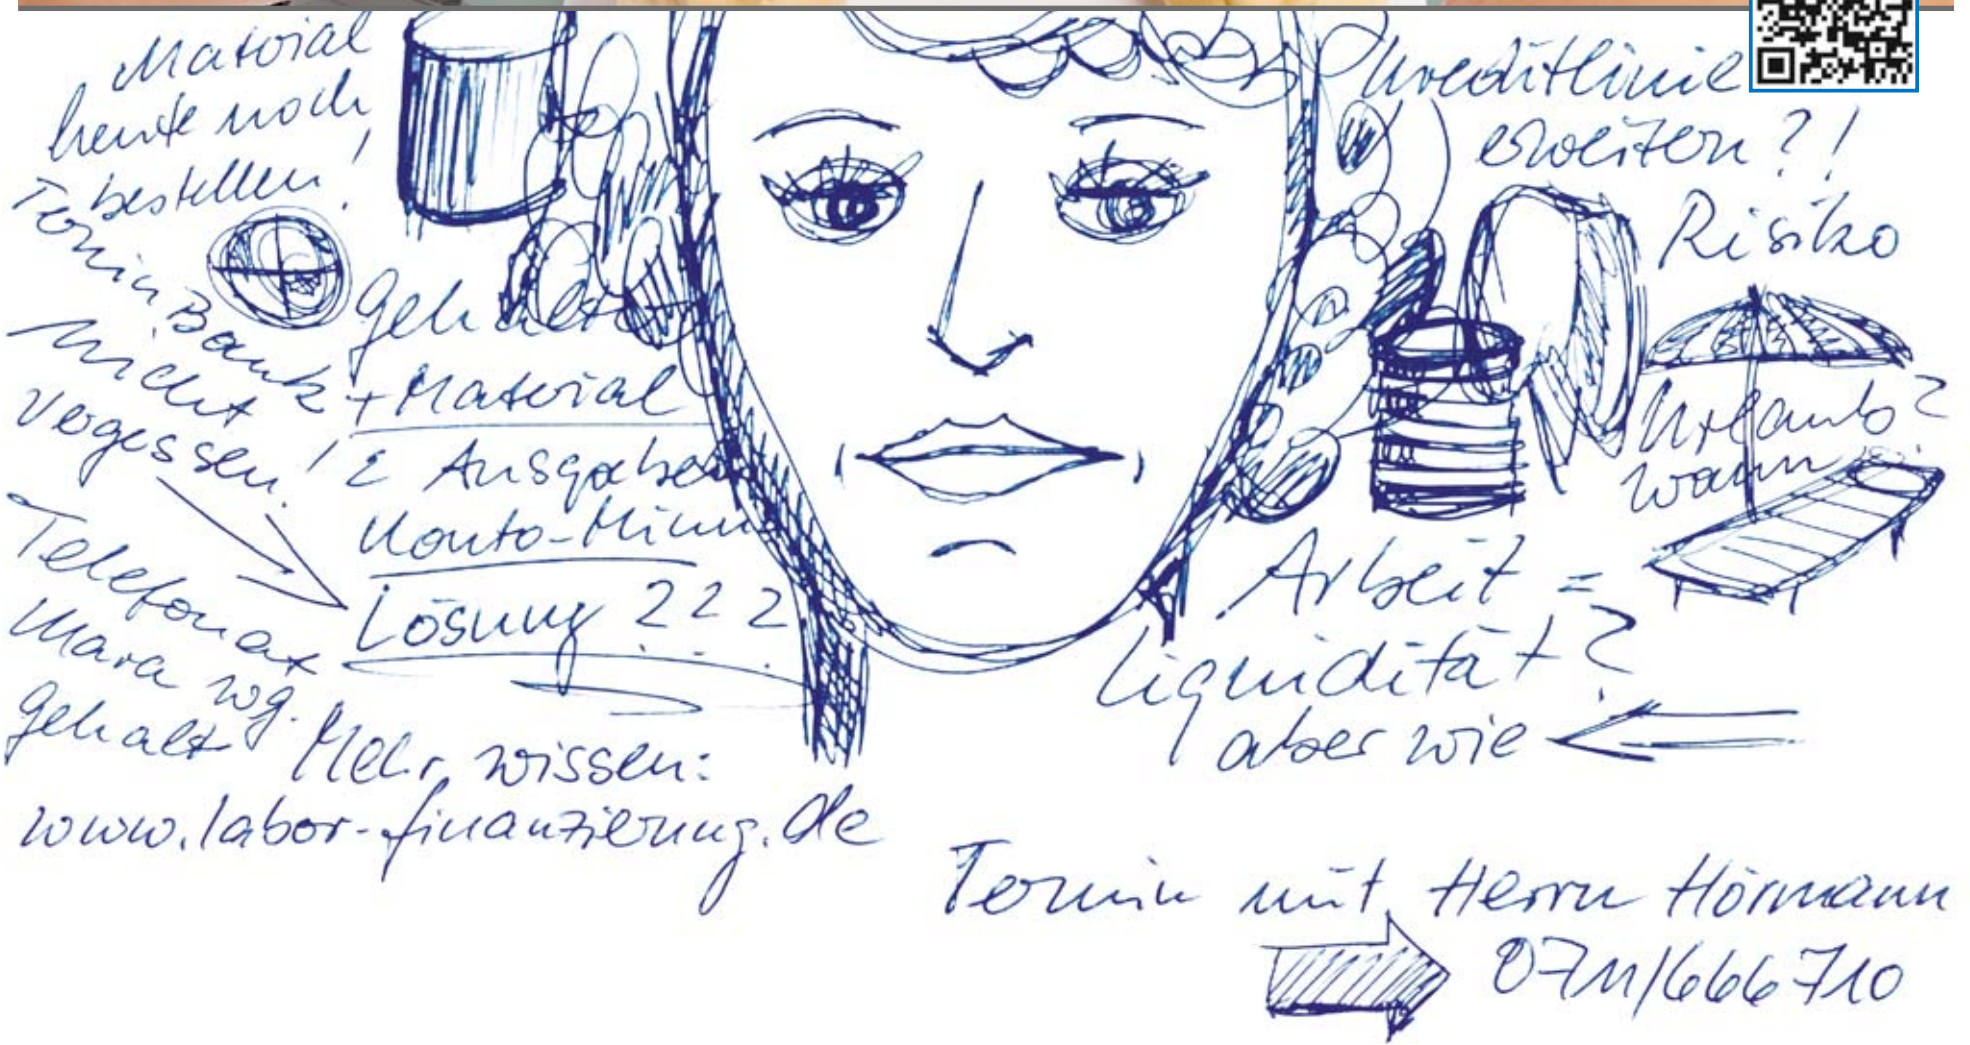 Material
heute noch
bestellen!
Termin Bank
nicht
vergessen!
Gehalt
+ Material
Σ Ausgaben
Konto-Minus
Lösung ???
Telefonat
Mara wg.
Gehalt
Mehr wissen:
www.labor-finanzierung.de
Kreditlinie
erweitern?!
Risiko
Urlaub?
wann?
Arbeit =
Liquidität?
aber wie
Termin mit Herrn Hörmann
0711/666710